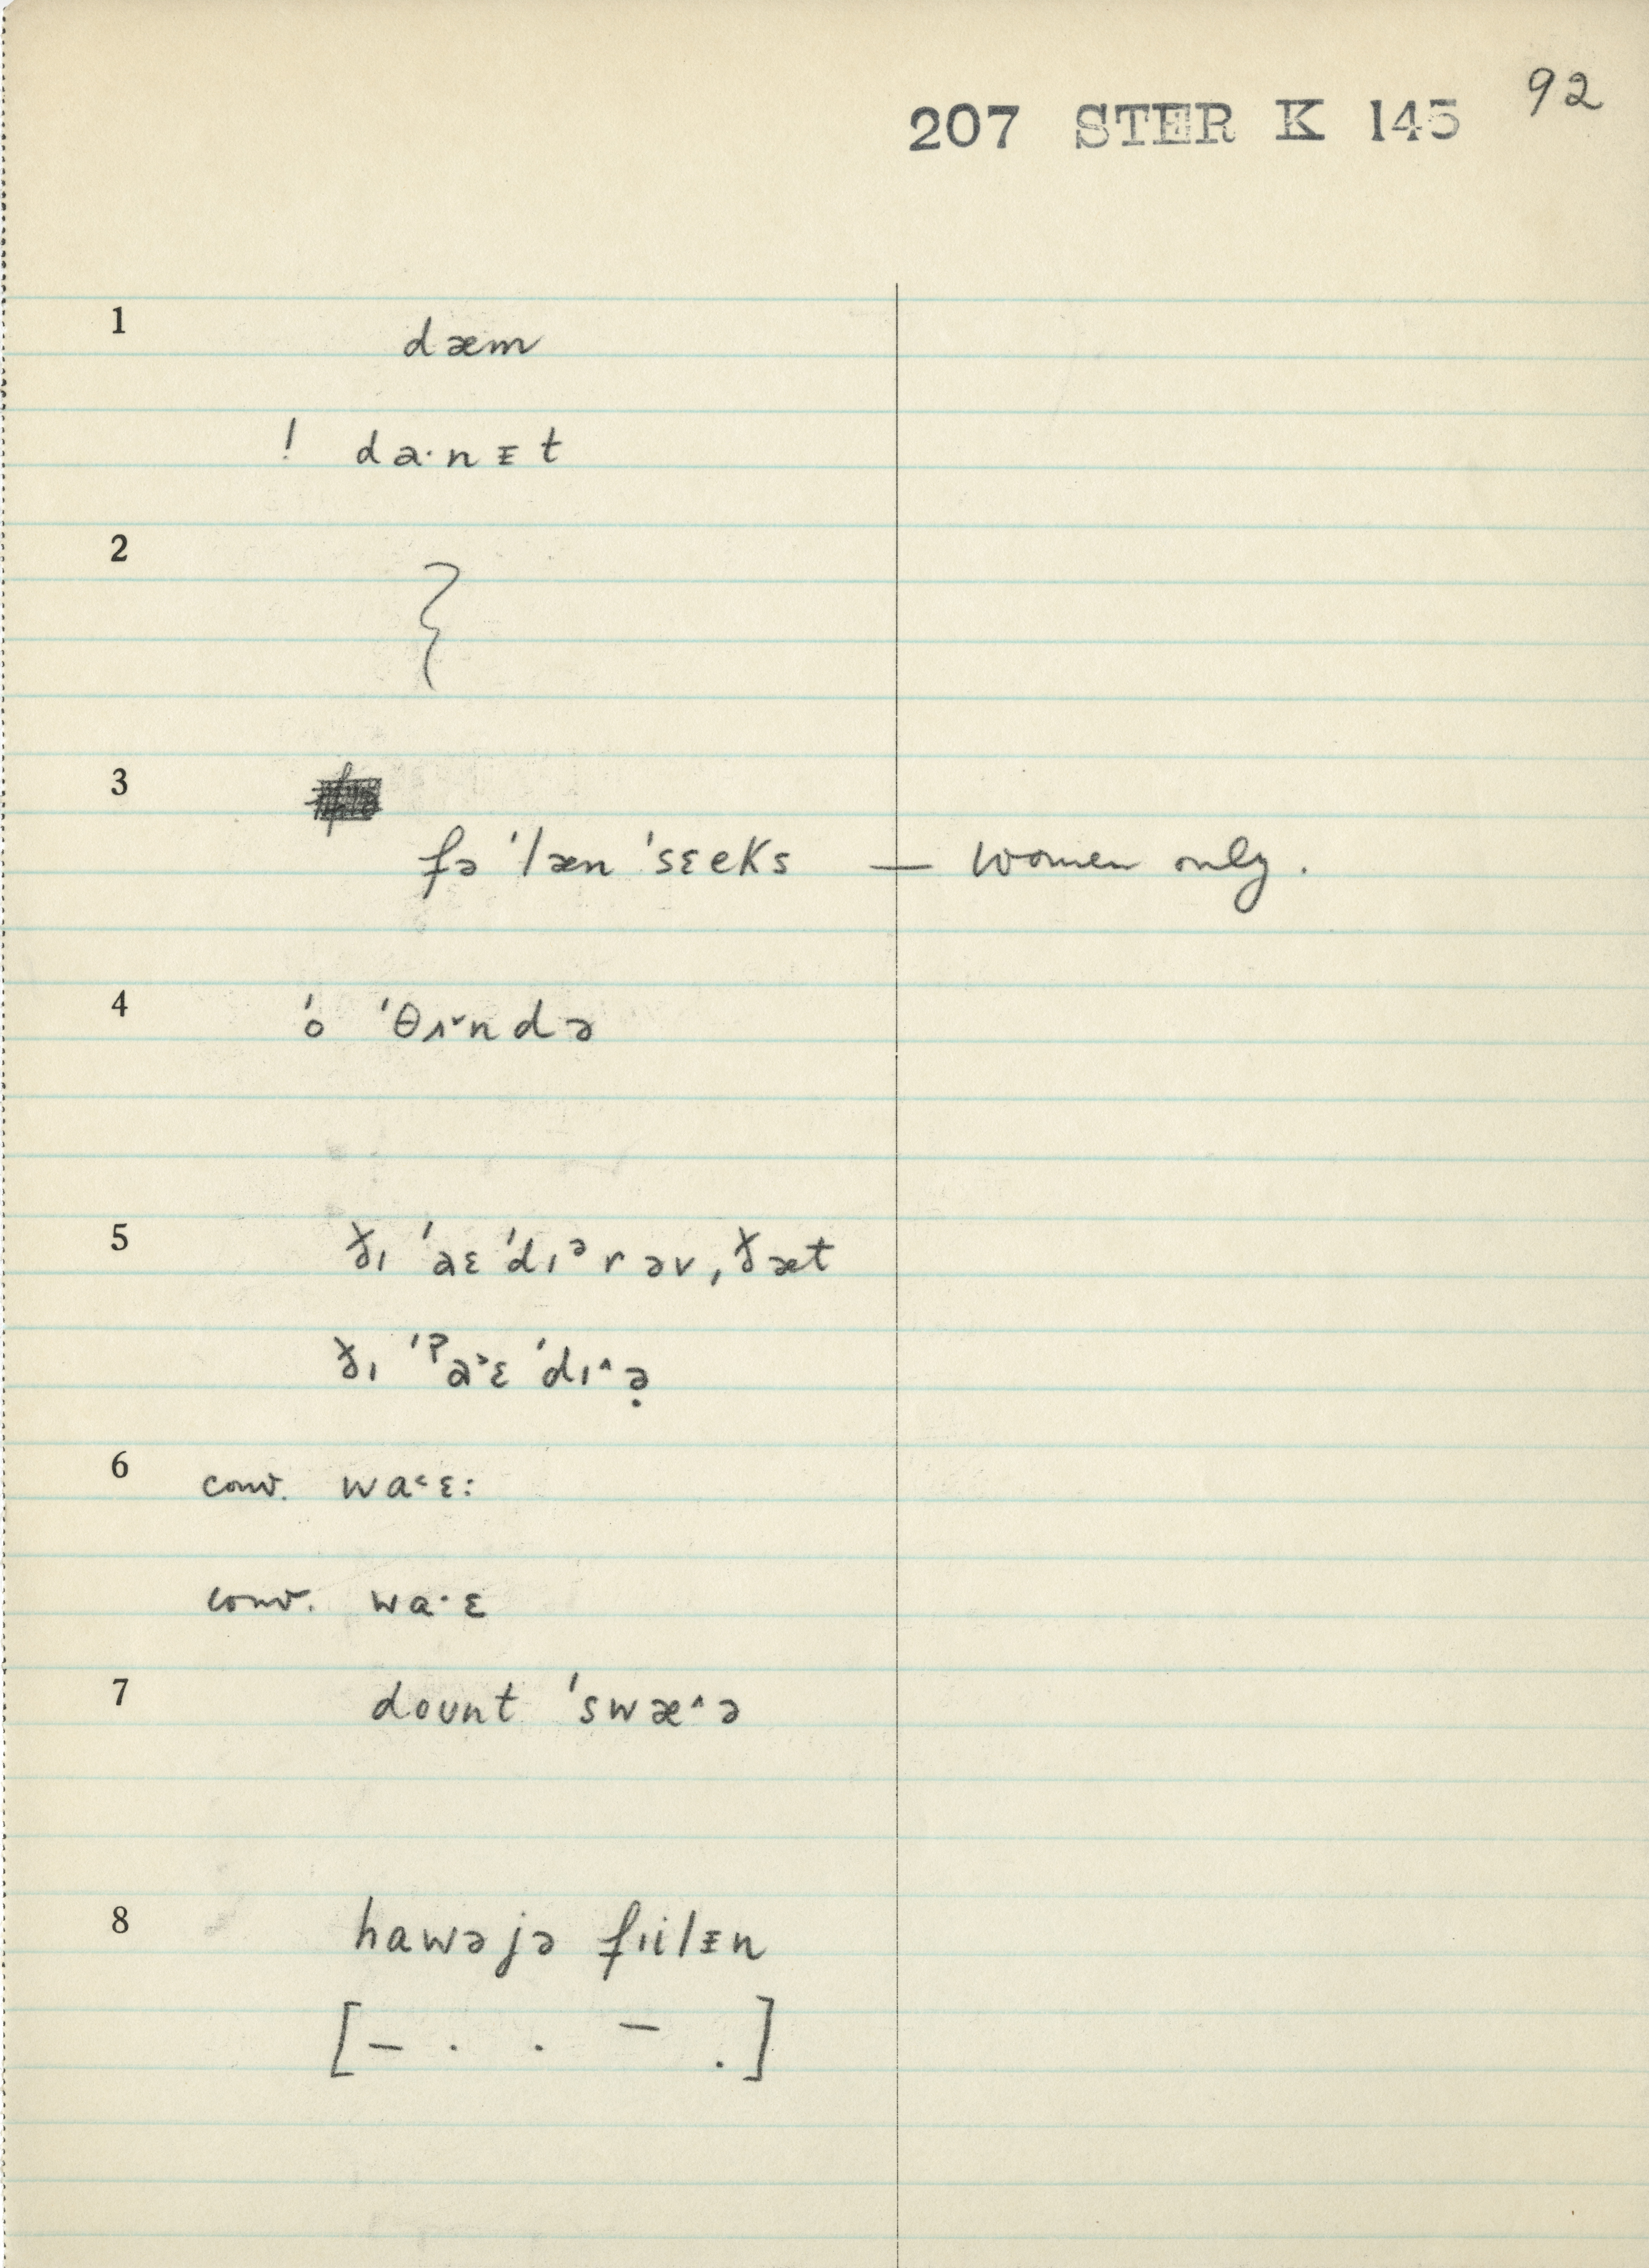 92
207 STER K 145
1 dæm
! da·nᵻt
2
3
fə ˈlæn ˈsɛeks — women only.
4 ˈo ˈθɪ˅ndə
5 ðɪ ˈaɛ ˈdɪᵊrəv, ðæt
ðɪ ˈʔa˃ɛ ˈdɪ˄ə̣
6 conv. wa˂ɛ:
conv. wa·ɛ
7 dount ˈswæ˄ə
8 hawəjə fɪilᵻn
[– . . – .]